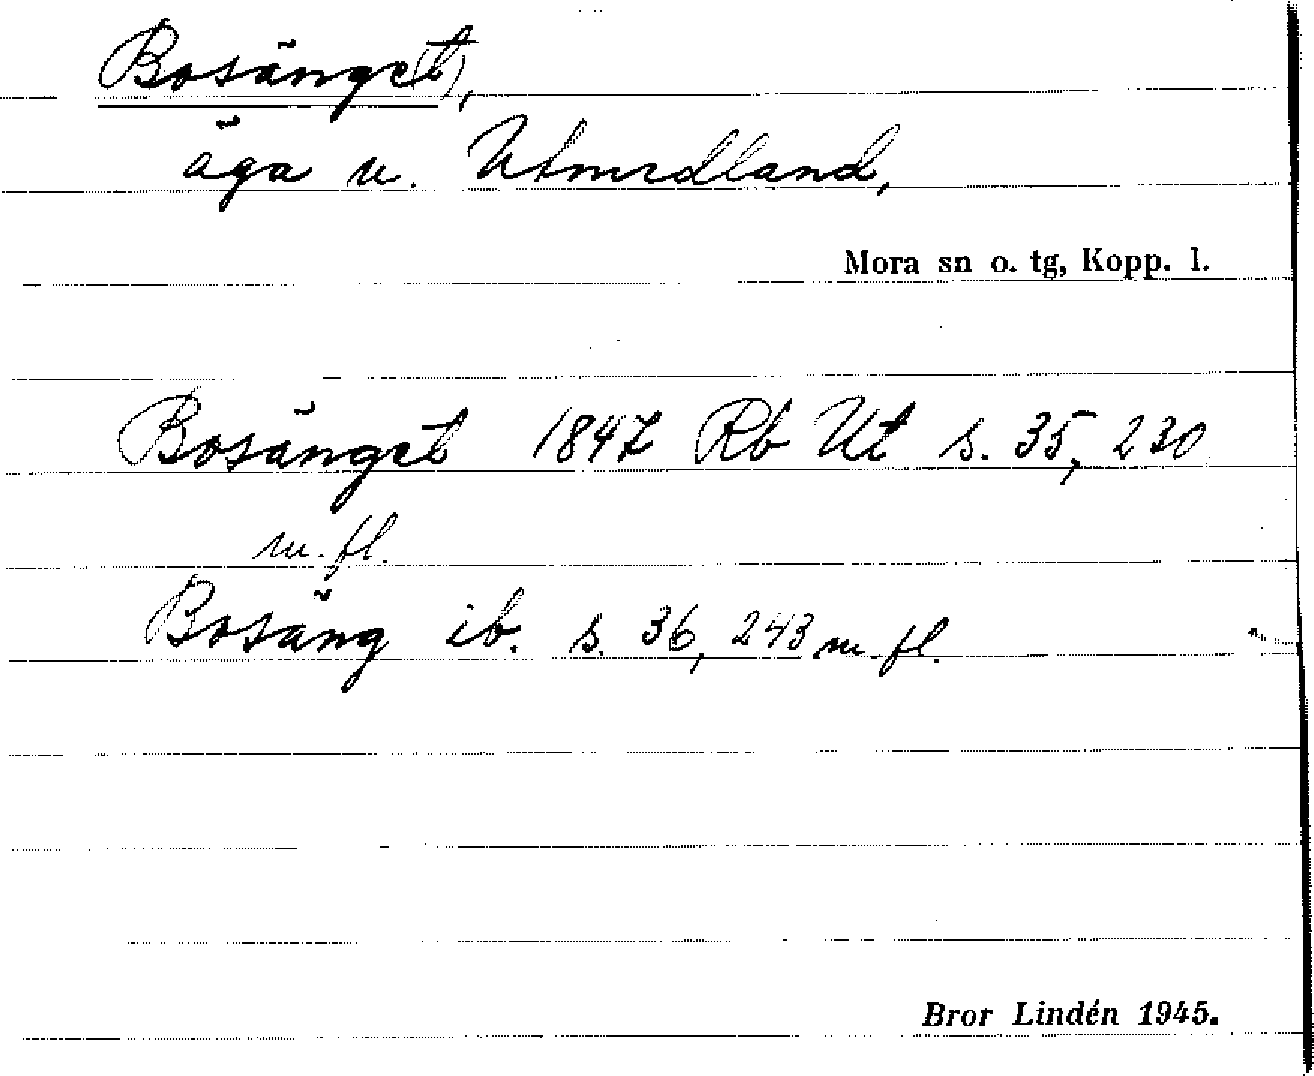 Bosänge(t),
äga u. Utmedland,
Mora sn o. tg, Kopp. l.
Bosänget 1847 Rb Ut s. 35, 230
m. fl.
Bosäng ib. s. 36, 243 m. fl.
Bror Lindén 1945.